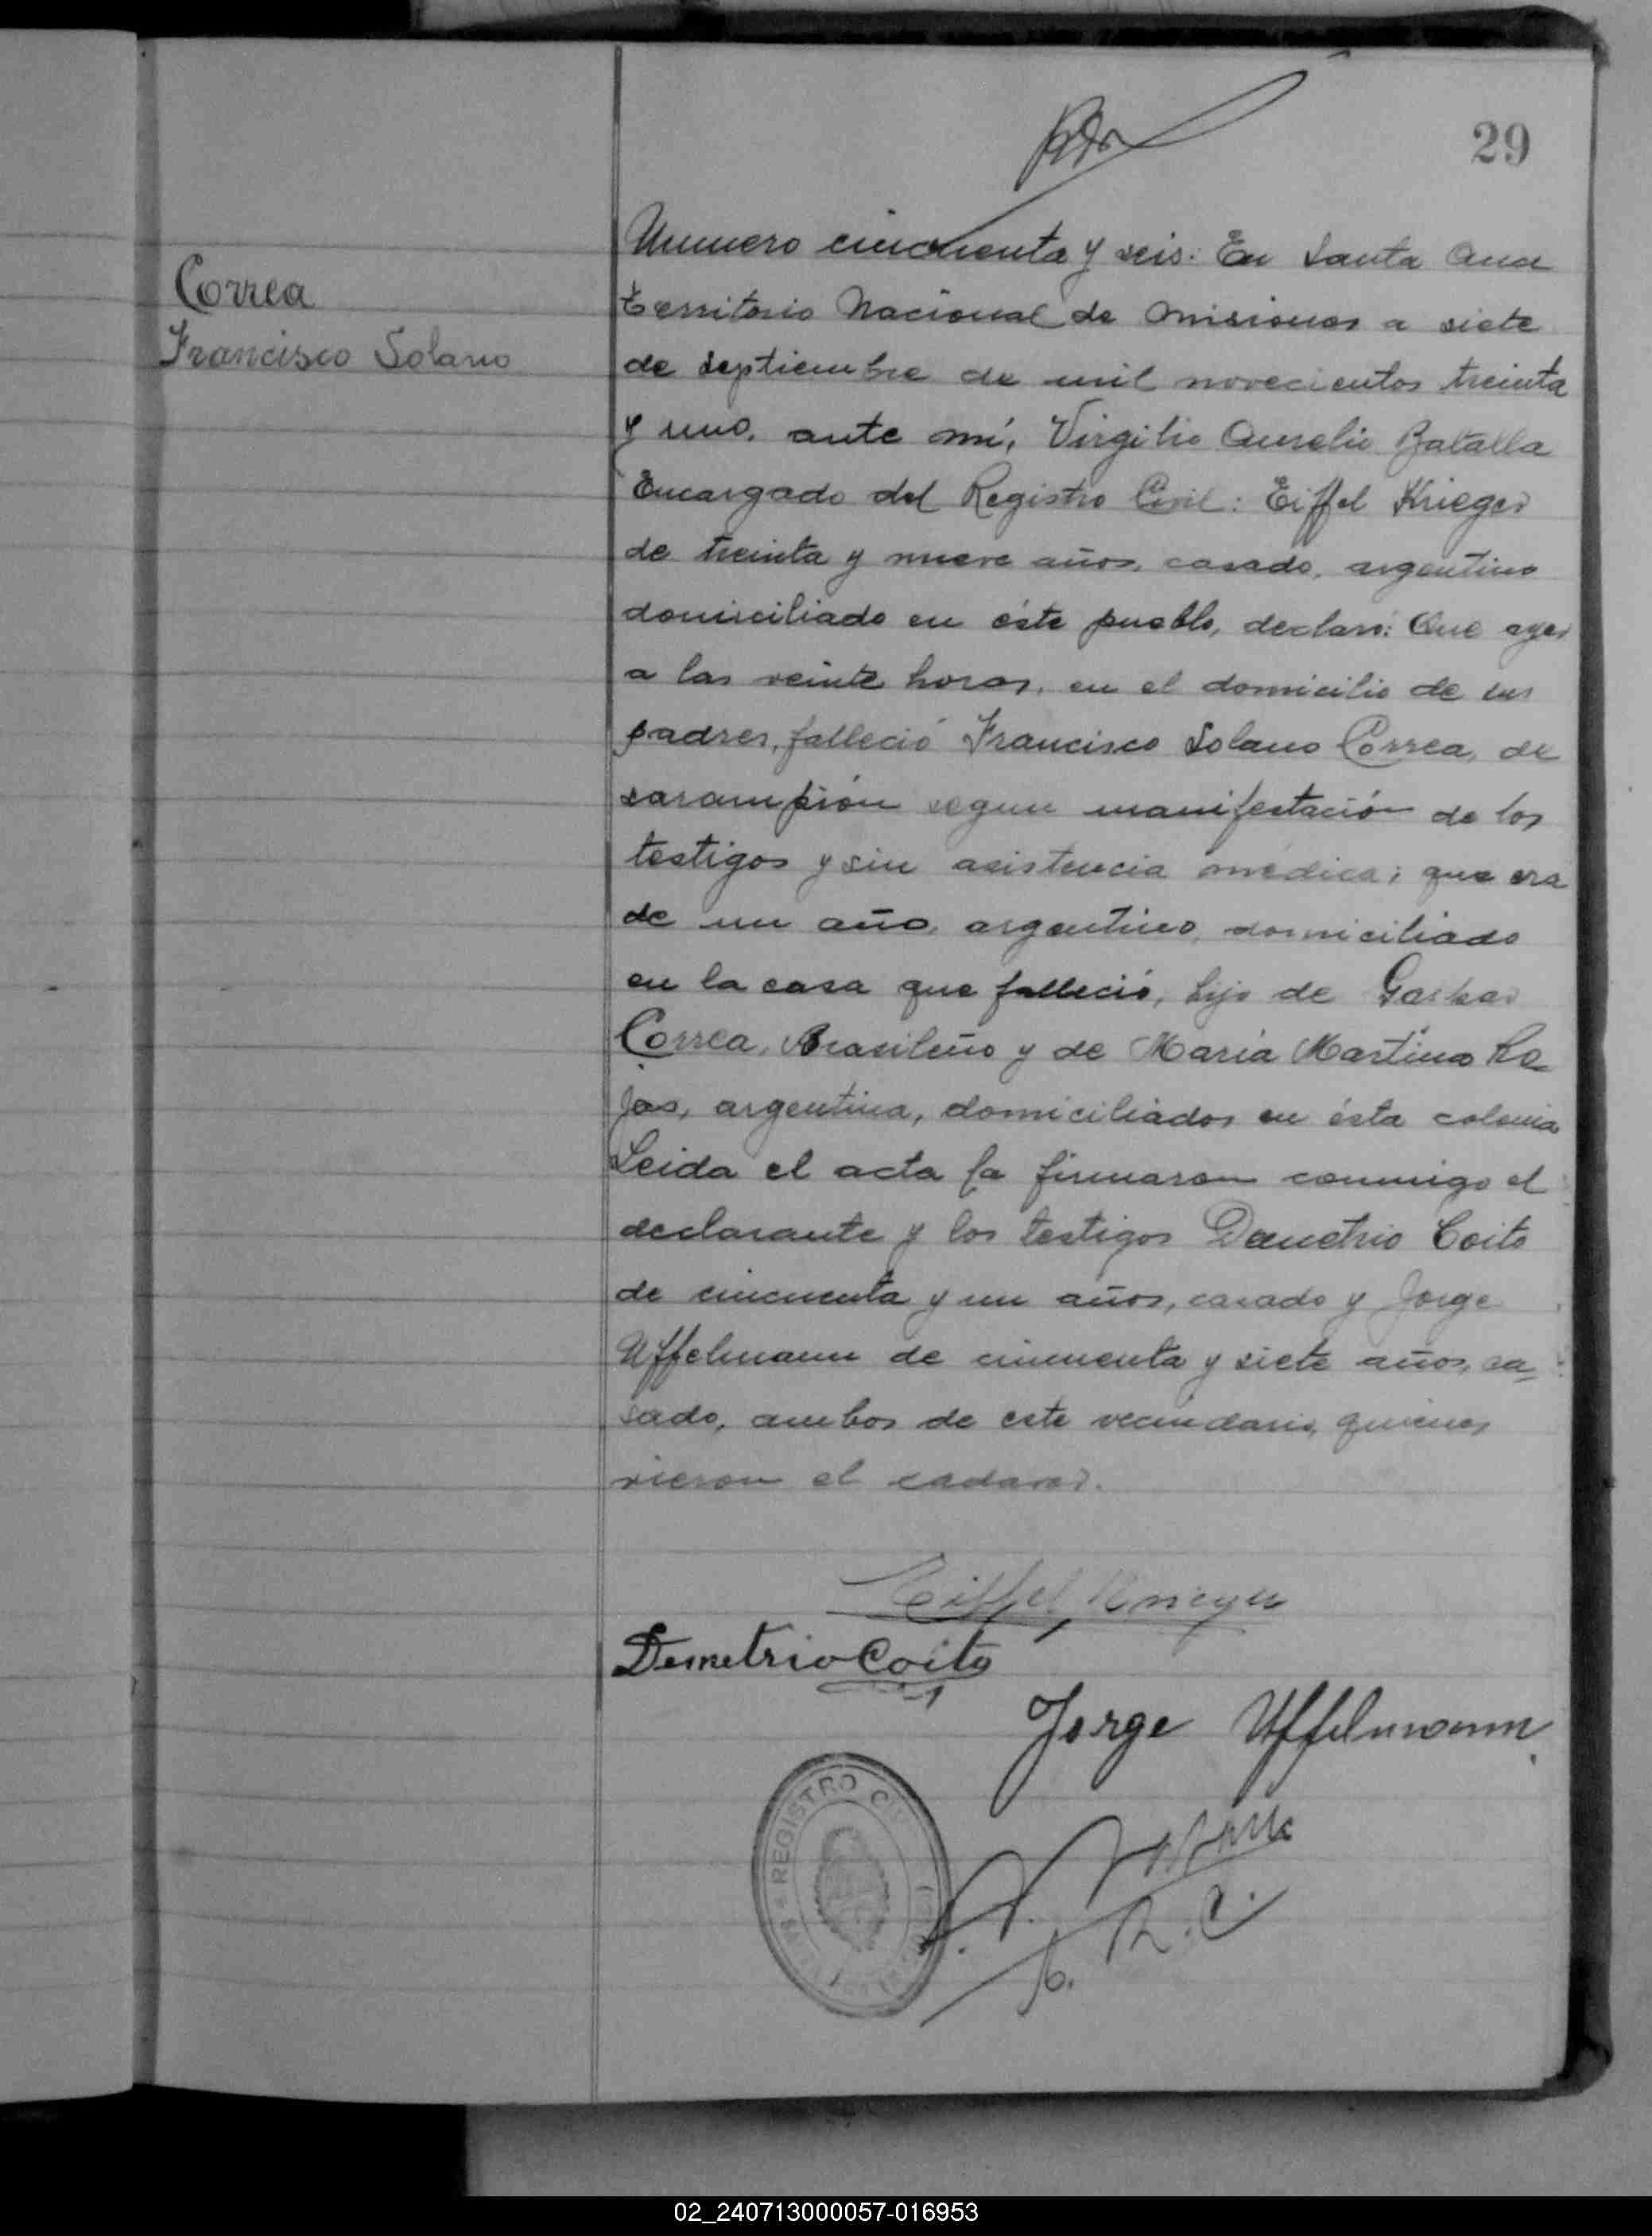 29
Correa
Francisco Solano
Numero cincuenta y seis: En Santa Ana
territorio Nacional de Misiones a siete
de septiembre de mil novecientos treinta
y uno, ante mí, Virgilio Aurelio Batalla
Encargado del Registro Civil: Eiffel Krieger
de treinta y nueve años, casado, argentino
domiciliado en éste pueblo, declaró: Que ayer
a las veinte horas, en el domicilio de sus
padres, falleció Francisco Solano Correa, de
sarampión segun manifestación de los
testigos y sin asistencia médica; que era
de un año, argentino, domiciliado
en la casa que falleció, hijo de Gaspar
Correa, Brasileño y de María Martina Ro-
jas, argentina, domiciliados en ésta colonia
Leida el acta la firmaron conmigo el
declarante y los testigos Demetrio Coito
de cincuenta y un años, casado y Jorge
Uffelmann de cincuenta y siete años, ca-
sado, ambos de este vecindario, quienes
vieron el cadaver.
Eiffel Krieger
Demetrio Coito
Jorge Uffelmann
REGISTRO
R.C.
02_240713000057-016953